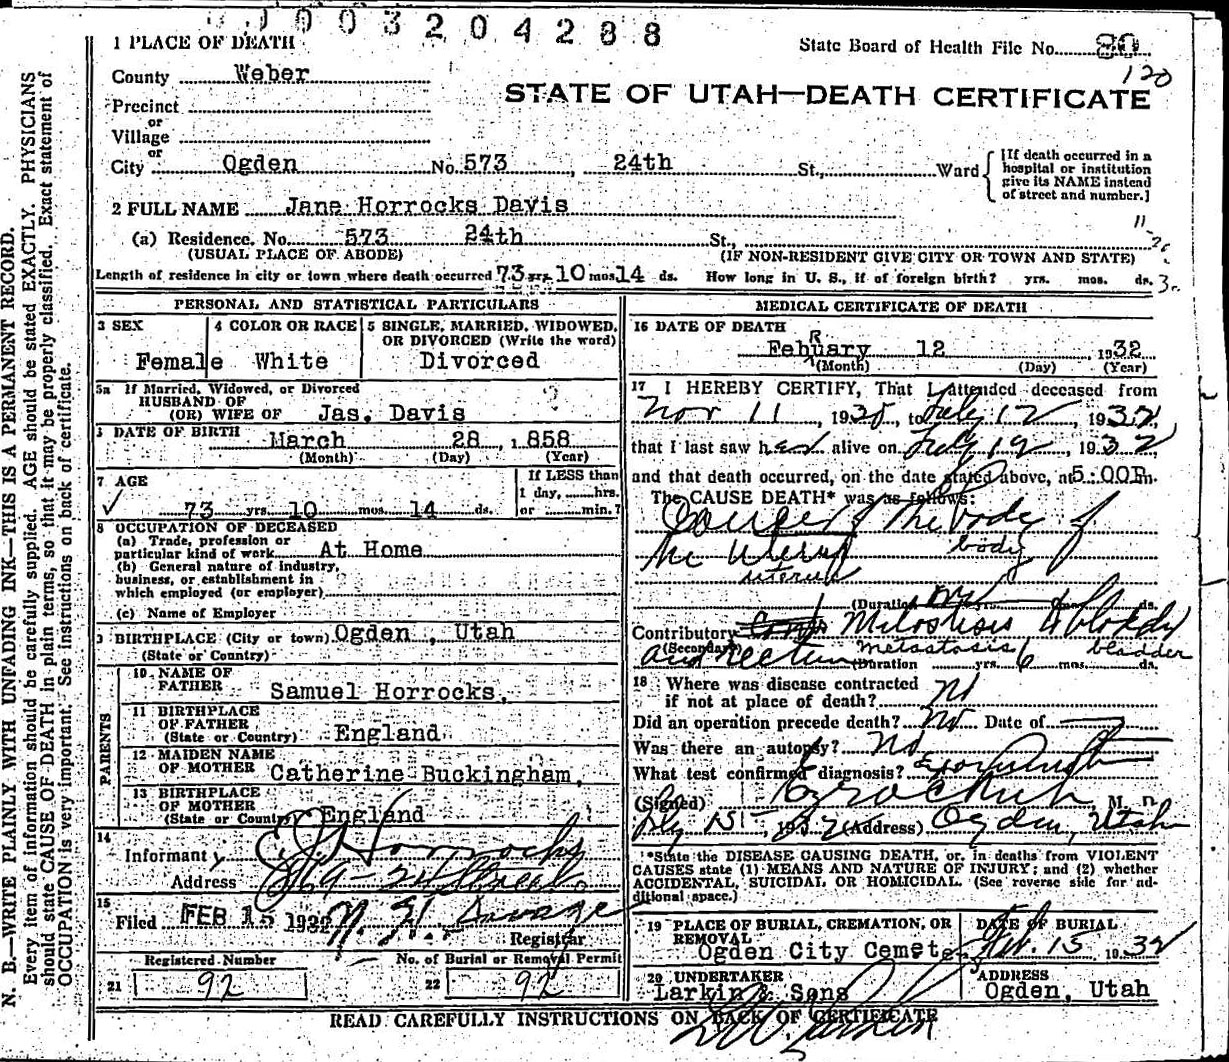 0003204288
1 PLACE OF DEATH
State Board of Health File No. 80
120
County Weber
STATE OF UTAH—DEATH CERTIFICATE
Precinct
or
Village
or
City Ogden No. 573, 24th St., Ward
[If death occurred in a
hospital or institution
give its NAME instead
of street and number.]
2 FULL NAME Jane Horrocks Davis
(a) Residence. No. 573 24th St.,
(USUAL PLACE OF ABODE) (IF NON-RESIDENT GIVE CITY OR TOWN AND STATE)
Length of residence in city or town where death occurred 73 yrs. 10 mos. 14 ds. How long in U. S., if of foreign birth? yrs. mos. ds.
N. B.—WRITE PLAINLY WITH UNFADING INK—THIS IS A PERMANENT RECORD.
Every item of information should be carefully supplied. AGE should be stated EXACTLY. PHYSICIANS
should state CAUSE OF DEATH in plain terms, so that it may be properly classified. Exact statement of
OCCUPATION is very important. See instructions on back of certificate.
PERSONAL AND STATISTICAL PARTICULARS
3 SEX 4 COLOR OR RACE 5 SINGLE, MARRIED, WIDOWED,
OR DIVORCED (Write the word)
Female White Divorced
5a If Married, Widowed, or Divorced
HUSBAND OF
(OR) WIFE OF Jas. Davis
DATE OF BIRTH March 28, 1858
(Month) (Day) (Year)
7 AGE If LESS than
1 day, hrs.
73 yrs. 10 mos. 14 ds. or min.?
8 OCCUPATION OF DECEASED
(a) Trade, profession or
particular kind of work At Home
(b) General nature of industry,
business, or establishment in
which employed (or employer)
(c) Name of Employer
9 BIRTHPLACE (City or town) Ogden, Utah
(State or Country)
PARENTS
10 NAME OF
FATHER Samuel Horrocks,
11 BIRTHPLACE
OF FATHER
(State or Country) England
12 MAIDEN NAME
OF MOTHER Catherine Buckingham,
13 BIRTHPLACE
OF MOTHER
(State or Country) England
14
Informant Horrocks
Address 869-24 Street
15
Filed FEB 15 1932
Registrar
Registered Number No. of Burial or Removal Permit
21 92 22 92
MEDICAL CERTIFICATE OF DEATH
16 DATE OF DEATH
R
Febuary 12 1932
(Month) (Day) (Year)
17 I HEREBY CERTIFY, That I attended deceased from
Nov 11, 1930, to Feby 12 1932,
that I last saw her alive on Feby 12, 1932
and that death occurred, on the date stated above, at 5:00P m.
The CAUSE DEATH* was as follows:
Cancer of the body of
the uterus body
uterus
(Duration yrs. mos. ds.
Contributory Metastasis to bladder
(Secondary)
and rectum metastasis bladder
(Duration yrs. 6 mos. ds.
18 Where was disease contracted
if not at place of death? No
Did an operation precede death? No Date of
Was there an autopsy? No
What test confirmed diagnosis?
(Signed) M. D.
Feby 15, 1932 (Address) Ogden, Utah
*State the DISEASE CAUSING DEATH, or, in deaths from VIOLENT
CAUSES state (1) MEANS AND NATURE OF INJURY; and (2) whether
ACCIDENTAL, SUICIDAL OR HOMICIDAL. (See reverse side for ad-
ditional space.)
19 PLACE OF BURIAL, CREMATION, OR
REMOVAL DATE OF BURIAL
Ogden City Cemete Feb. 15 1932
20 UNDERTAKER ADDRESS
Larkin & Sons Ogden, Utah
READ CAREFULLY INSTRUCTIONS ON BACK OF CERTIFICATE